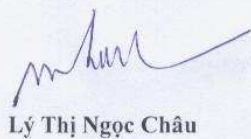 Lý Thị Ngọc Châu